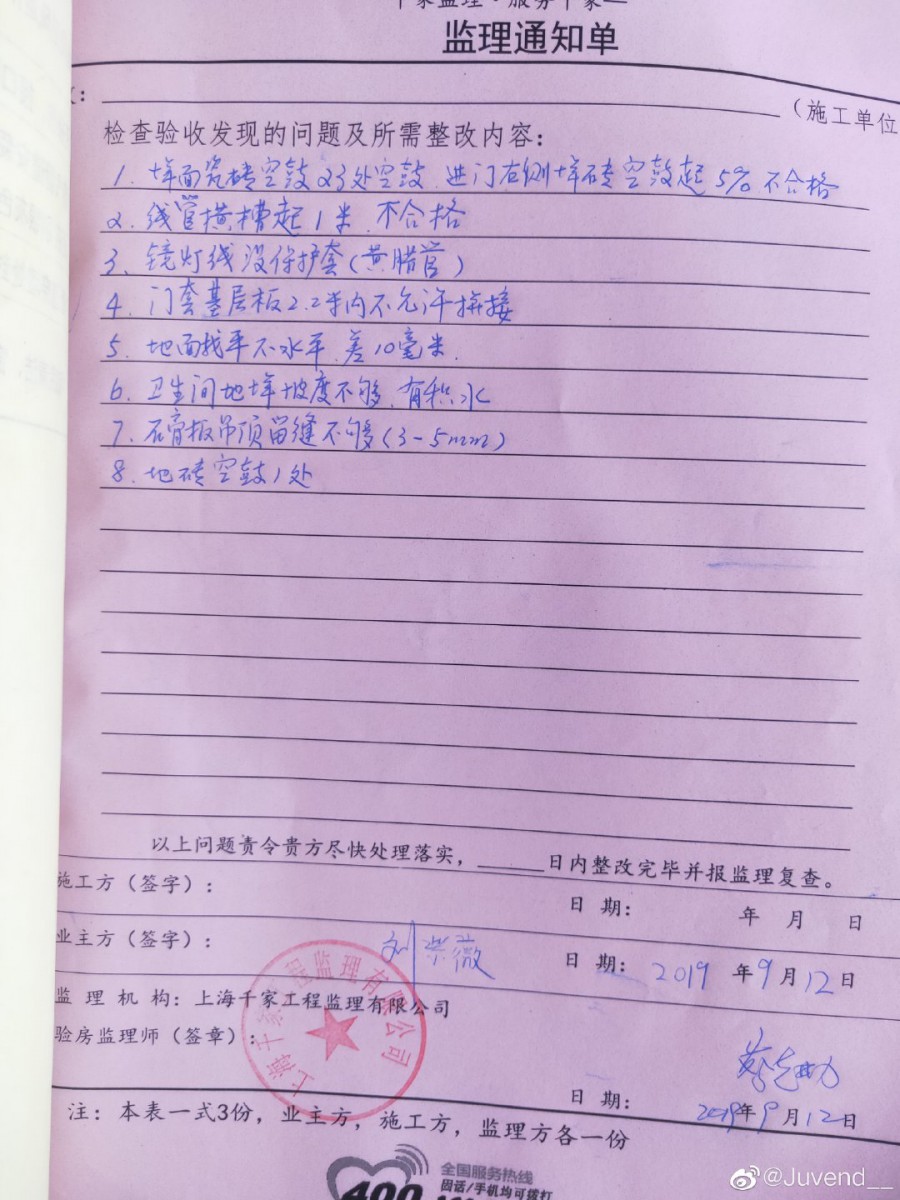 千家监理·服务千家
监理通知单
:
(施工单位
检查验收发现的问题及所需整改内容:
1. 墙面瓷砖空鼓23处空鼓.进门右侧墙砖空鼓起5%不合格
2. 线管横槽起1米.不合格
3、镜灯线没保护套(黄腊管)
4、门套基层板2.2米内不允许拼接
5、地面找平不水平.差10毫米.
6、卫生间地坪坡度不够.有积水
7、石膏板吊顶留缝不够(3-5mm)
8、地砖空鼓1处
以上问题责令贵方尽快处理落实,日内整改完毕并报监理复查。
施工方(签字):
日 期: 年 月 日
业主方(签字): 刘紫薇
日 期: 2019 年 9 月 12 日
监 理 机 构:上海千家工程监理有限公司
上海千家工程监理有限公司
验房监理师(签章):
日 期: 2019年 9 月 12日
注:本表一式3份,业主方,施工方,监理方各一份
全国服务热线
固话/手机均可拨打
400
@Juvend__